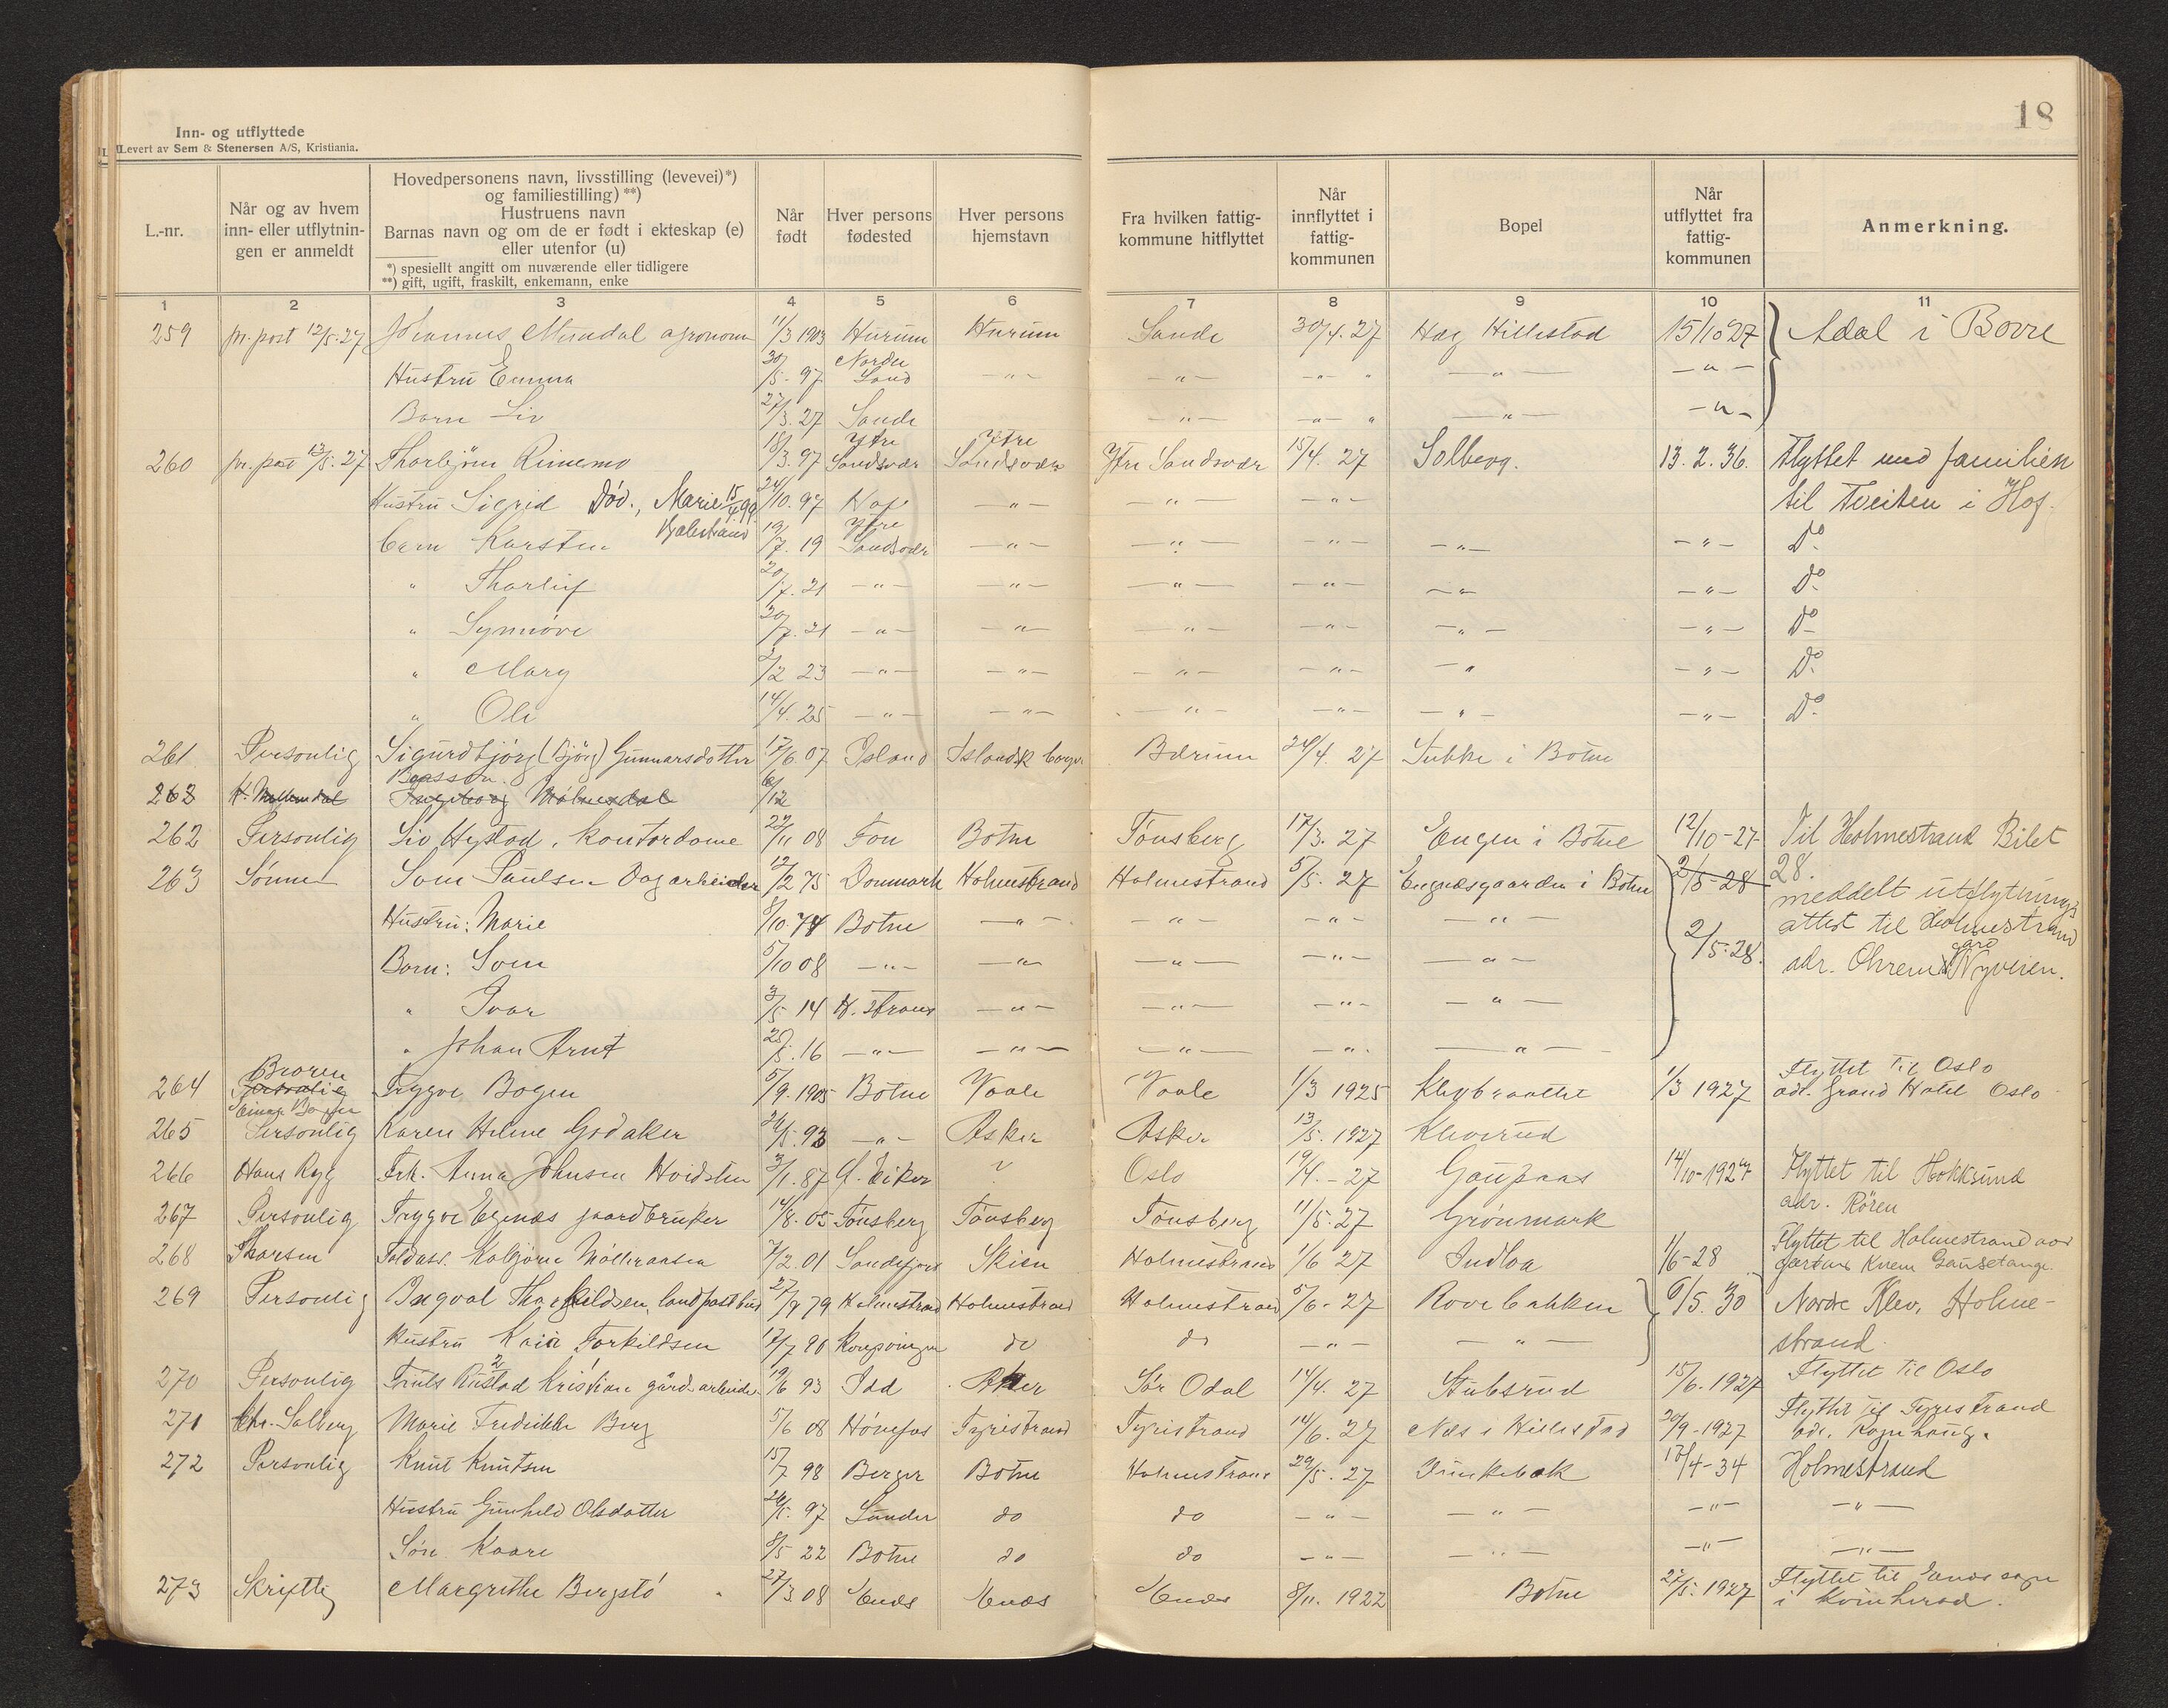 18
Inn- og utflyttede
Levert av Sem & Stenersen A/S, Kristiania.
L.-nr.
Når og av hvem inn- eller utflytnin- gen er anmeldt
Hovedpersonens navn, livsstilling (levevei)*)
og familiestilling) **)
Hustruens navn
Barnas navn og om de er født i ekteskap (e)
eller utenfor (u)
*) spesiellt angitt om nuværende eller tidligere
**) gift, ugift, fraskilt, enkemann, enke
Når født
Hver persons fødested
Hver persons hjemstavn
Fra hvilken fattig- kommune hitflyttet
Når innflyttet i fattig- kommunen
Bopel
Når utflyttet fra fattig- kommunen
Anmerkning.
1 2 3 4 5 6 7 8 9 10 11
259 pr. post 12/5-27 Johannes Mundal agronom 11/3 1903 Hurum Hurum Sande 30/4. 27 Hag Hillestad 15/10 27 Adal i Borre
Hustru Emma 30/5-97 Nordre Land -"- -"- -"- " -"- -"-
Barn Liv 27/3.27 Sande -"- -"- " -"- -"-
260 pr. post 12/5.27 Thorbjörn Rimemo 18/3.97 Ytre Sandsvær Ytre Sandsvær Ytre Sandsvær 15/4. 27 Solberg. 13.2.36. Flyttet med familien
Hustru Sigrid Död., Marie 15/4 99 24/10.97 Hof -"- -"- -"- til Tveiten i Hof.
Balestrand
barn Karsten 19/7. 19 Ytre Sandsvær -"- -"- -"- -"- -"- Do
" Thorleif 20/7. 21 -"- -"- -"- -"- -"- -"- Do
" Synnöve 20/7. 21 -"- -"- -"- -"- -"- -"- Do
" Mary 2/2 23 -"- -"- -"- -"- -" -"- Do
" Ole 14/4. 25 -"- -"- -"- -"- -"- -"- Do
261 Personlig Sigurdbjörg (Björg) Gunnarsdotter 17/6.07 Island Islandsk borger Bærum 24/4. 27 Sukke i Botne
263 6/12
262 Personlig Liv Hystad, kontordame 27/11 08 Fon Botne Tønsberg 17/3. 27 Engen i Botne 12/10-27 Til Holmestrand Bilet
28.
263 Sönnen Som Paulsen Dagarbeider 12/2 75 Danmark Holmestrand Holmestrand 5/5. 27 Engnesgaarden i Botne 2/5-28 meddelt utflytnings
Hustru: Marie 8/10.74 Botne -"- -"- -"- -"- attest til Holmestrand
Barn: Som 5/10 08 -"- -"- -"- -"- -"- 2/5-28. adr. Nyveien.
" Ivar 3/5 14 H. strand -"- -"- -"- -"-
" Johan Arnt 20/5.16 -"- -"- -"- -"- -"-
264 Broren Personlig Einar Bogen Trygve Bogen 5/9.1905 Botne Vaale Vaale 1/3 1925 1/3 1927 Flyttet til Oslo
adr. Grand Hotel Oslo
265 Personlig Karen Helene Godaker 24/5.93 -"- Asker Asker 13/5. 1927 Kleverud
266 Hans Ryg Frk. Anna Johnsen Hvidsten 3/1.87 Ø. Eiker ? Oslo 19/4.-27 Gaupaas 14/10-1927 Flyttet til Hokksund
adr. Røren
267 Personlig Trygve Egenæs gaardbruker 14/8-05 Tønsberg Tønsberg Tønsberg 11/5.27 Grönmark
268 Thorsen 7/2.01 Sandefjord Skien Holmestrand 1/6 27 Indloa 1/6-28 Flyttet til Holmestrand adr
269 Personlig Ingval Thorkildsen, landpostbud 27/9 79 Holmestrand Holmestrand Holmestrand 5/6-27 Rovebakken 6/5.30 Nordre Klev, Holme-
Hustru Kaia Torkildsen 17/7 90 Kongvinger do do -"- -"- strand.
270 Personlig Rustad Kristian gårdsarbeider 19/6 93 Idd Aker Sör Odal 14/4. 27 Stubsrud 15/6.1927 Flyttet til Oslo
271 Chr. Solberg Marie Fredrikke Berg 5/6 08 Hönefos Tyristrand Tyristrand 14/6. 27 Næs i Hillestad 30/9-1927 Flyttet til Tyristrand
adr. Ragnhaug.
272 Personlig Knut Knutsen 15/7 98 Berger Botne Holmestrand 29/5. 27 17/4-34 Holmestrand
Hustru Gunhild Olsdatter 24/5. 97 Sander do do -"- -"- -"- -"-
Sön Kaare 8/5 22 Botne do do -"- -"- -"- -"-
273 Skriftlig Margrethe Bergstö 27/3.08 Enæs Enæs Enæs 8/11. 1922 Botne 27/5.1927 Flyttet til Enæs sogn
i Kvinherad.